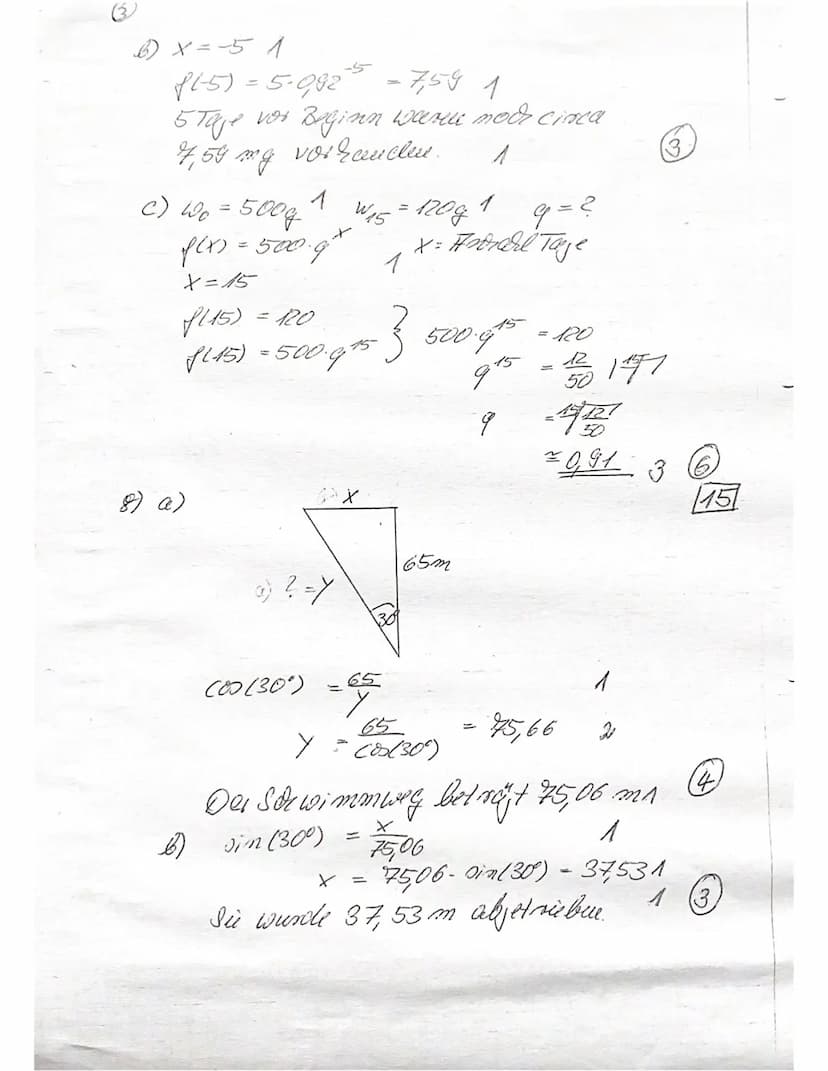 (3)
b) x = -5 1
f(-5) = 5·0,92^-5 = 7,59 1
5 Tage vor Beginn waren noch circa
7,59 mg vorhanden. 1 (3)
c) w₀ = 500g 1 w₁₅ = 120g 1 q = ?
f(x) = 500·q^x 1 x = Anzahl Tage
x = 15
f(15) = 120
f(15) = 500·q^15 } 500·q^15 = 120
q^15 = 12/50 | ¹⁵√
q = ¹⁵√12/50
≈ 0,91 3 (6)
15
8) a) x
65m
a) ? = y
30°
cos(30°) = 65/y 1
y = 65/cos(30°) = 75,66 2
Der Schwimmweg beträgt 75,06 m 1 (4)
b) sin(30°) = x/75,06 1
x = 75,06 · sin(30°) = 37,53 1
Sie wurde 37,53 m abgetrieben. 1 (3)